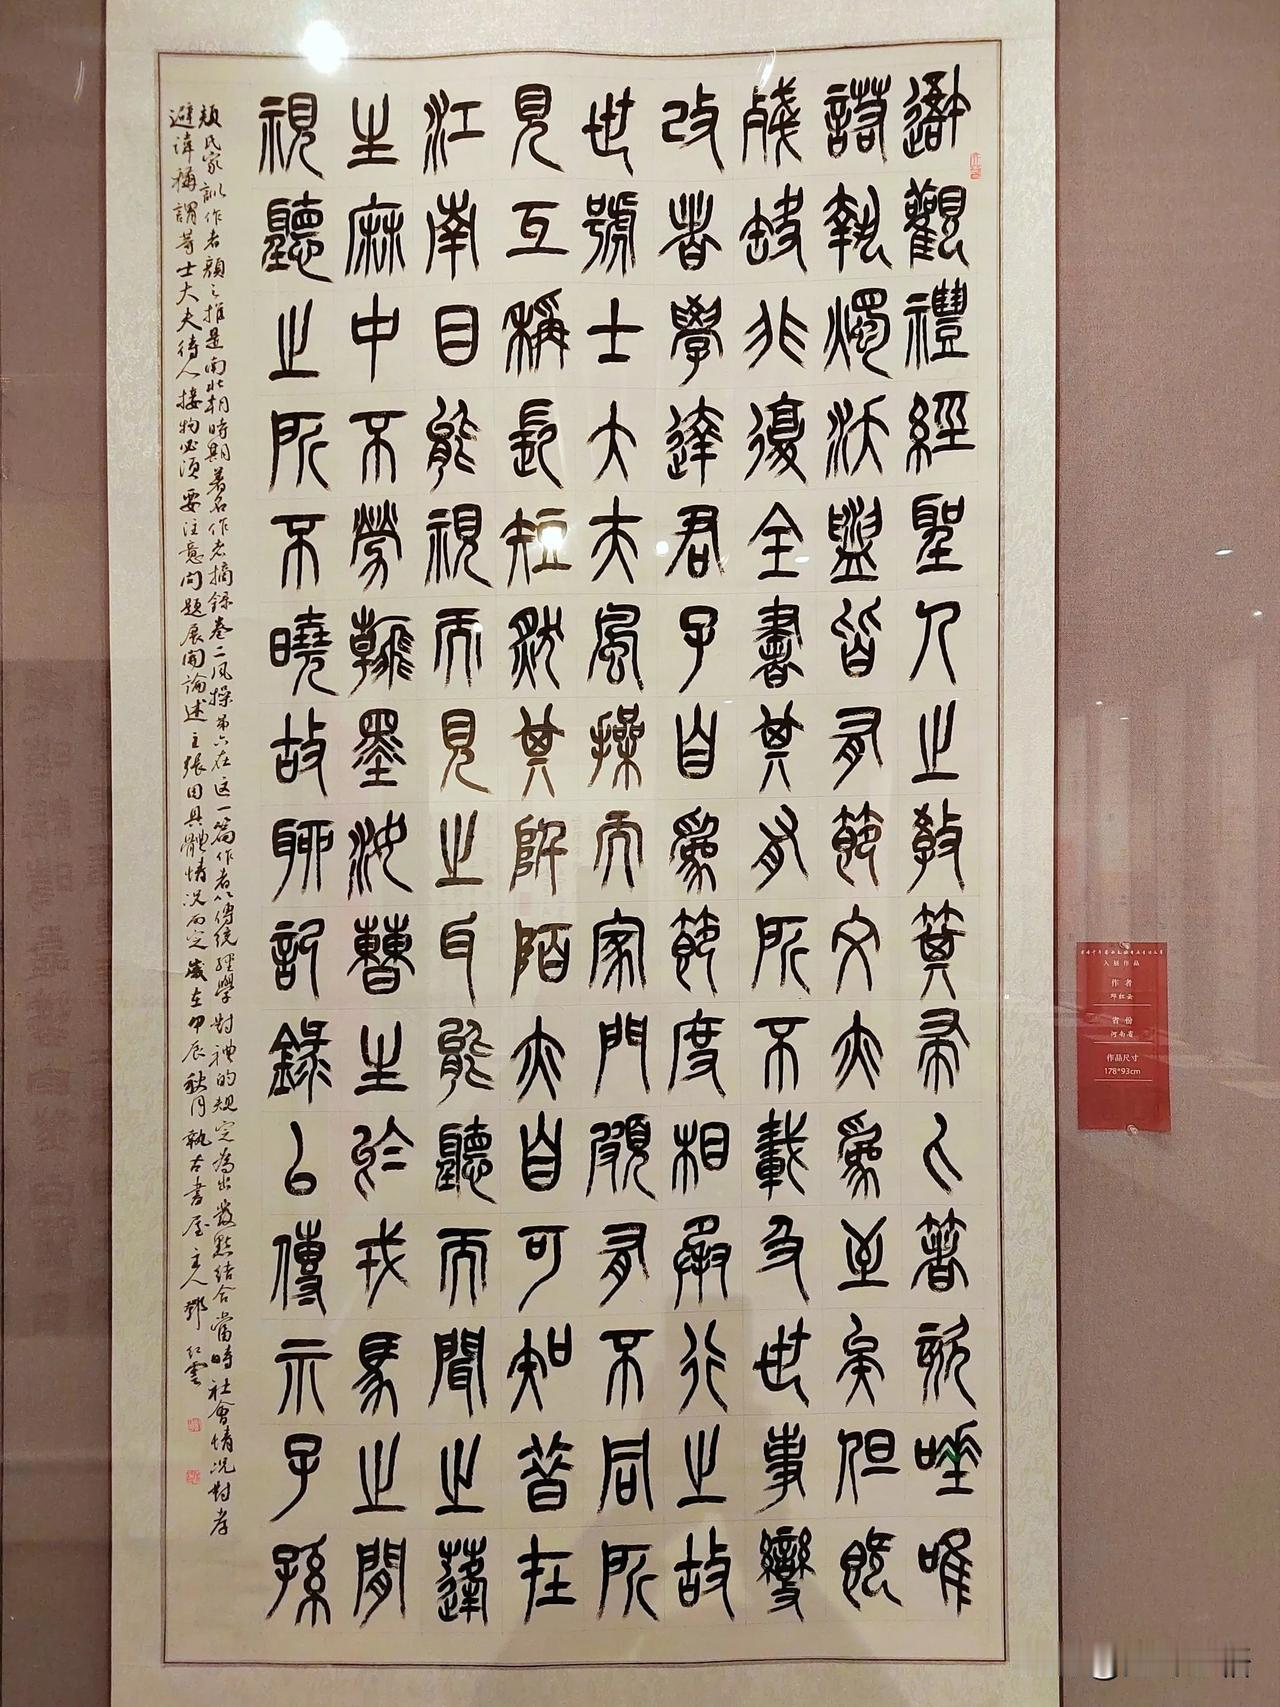 吾觀禮經聖人之教箕帚匕箸咳唾唯
諾執燭沃盥皆有節文亦為至矣但既
殘缺非復全書其有所不載及世事變
改者學達君子自為節度相承行之故
世號士大夫風操而家門頗有不同所
見互稱長短然其阡陌亦自可知昔在
江南目能視而見之耳能聽而聞之蓬
生麻中不勞翰墨汝曹生於戎馬之間
視聽之所不曉故聊記錄以傳示子孫
顏氏家訓作者顏之推是南北朝時期著名作者摘錄卷二風操第六在这一篇作者以傳統經學對禮的規定為出發點結合當時社會情況對孝
避諱稱謂等士大夫待人接物必須要注意問題展開論述主張因具體情況而定歲在甲辰秋月執古書屋主人鄧紅雲
入展作品
作者
邓红云
省份
河南省
作品尺寸
178*93cm